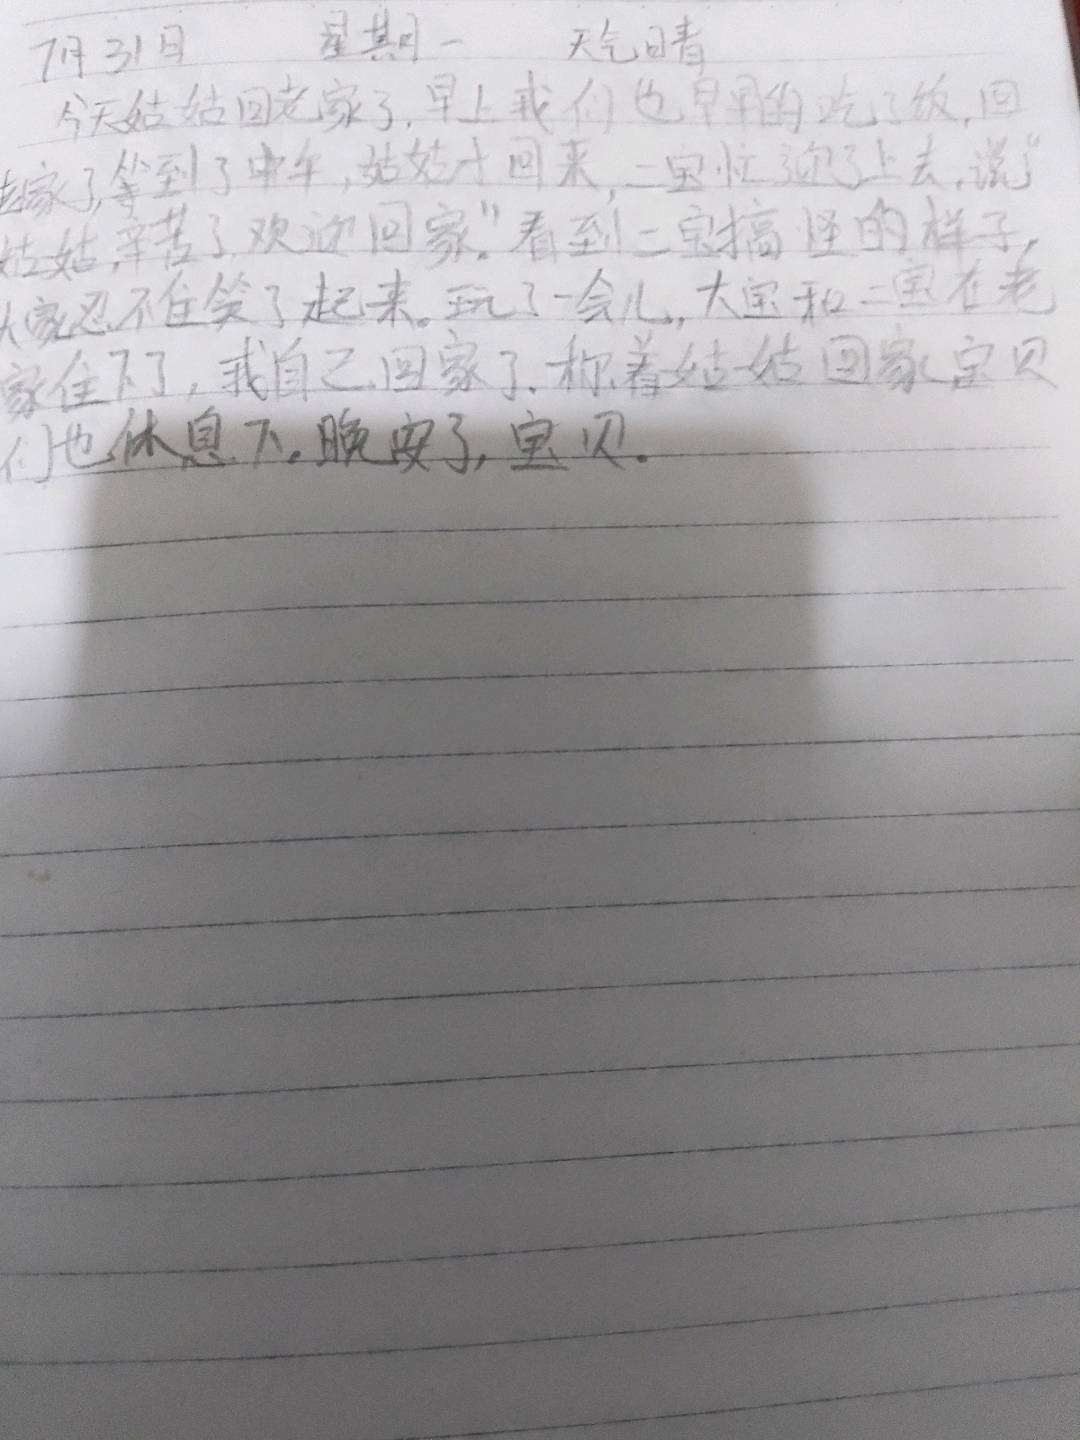 7月31日 星期一 天气晴
今天姑姑回老家了,早上我们也早早的吃了饭,回
老家了,等到了中午,姑姑才回来,二宝忙迎了上去,说"
姑姑,辛苦了,欢迎回家。"看到二宝搞怪的样子,
大家忍不住笑了起来。玩了一会儿,大宝和二宝在老
家住下了,我自己回家了.称着姑姑回家宝贝
们也休息下。晚安了,宝贝.